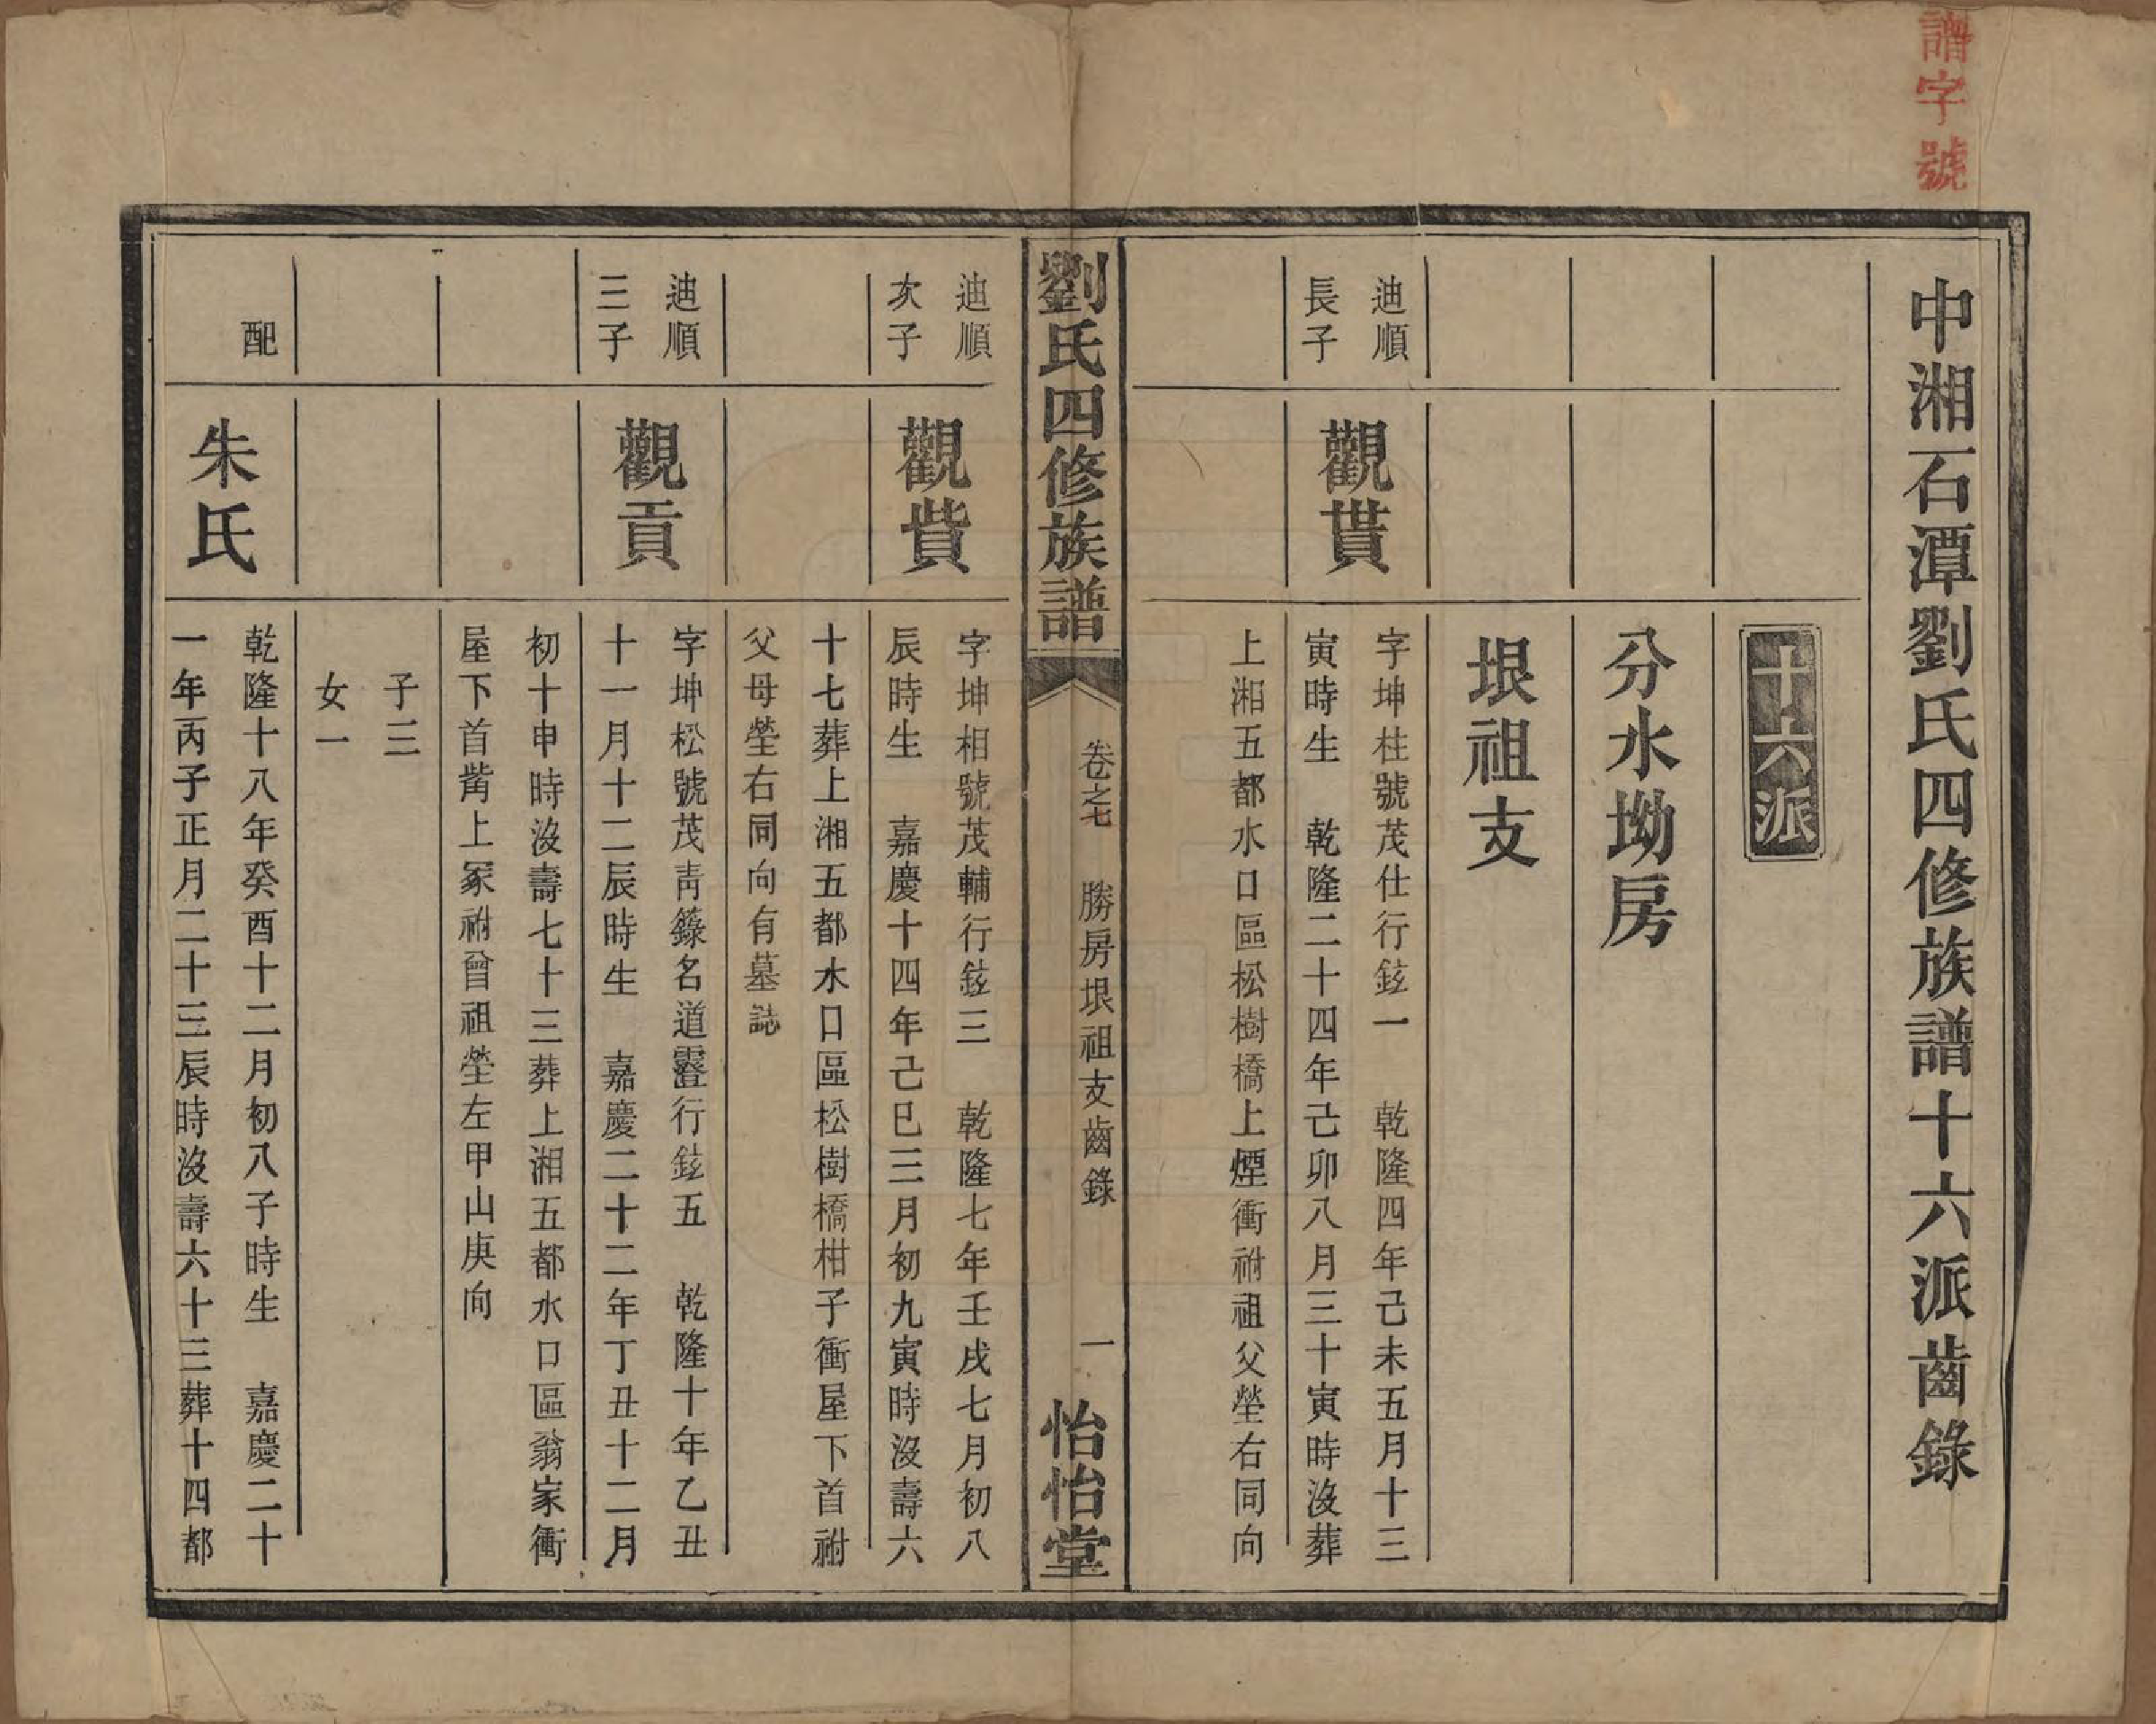 譜字號
中湘石潭劉氏四修族譜十六派齒錄
十六派
分水坳房
垠祖支
迪順
長子
觀貰
字坤柱號茂仕行鉉一　乾隆四年己未五月十三
寅時生　乾隆二十四年己卯八月三十寅時沒葬
上湘五都水口區松樹橋上煙衝祔祖父塋右同向
劉氏四修族譜
卷之七　勝房垠祖支齒錄　一
怡怡堂
迪順
次子
觀貲
字坤相號茂輔行鉉三　乾隆七年壬戌七月初八
辰時生　嘉慶十四年己巳三月初九寅時沒壽六
十七葬上湘五都水口區松樹橋柑子衝屋下首祔
父母塋右同向有墓誌
迪順
三子
觀貢
字坤松號茂靑籙名道靈行鉉五　乾隆十年乙丑
十一月十二辰時生　嘉慶二十二年丁丑十二月
初十申時沒壽七十三葬上湘五都水口區翁家衝
屋下首觜上冢祔曾祖塋左甲山庚向
子三
女一
配
朱氏
乾隆十八年癸酉十二月初八子時生　嘉慶二十
一年丙子正月二十三辰時沒壽六十三葬十四都